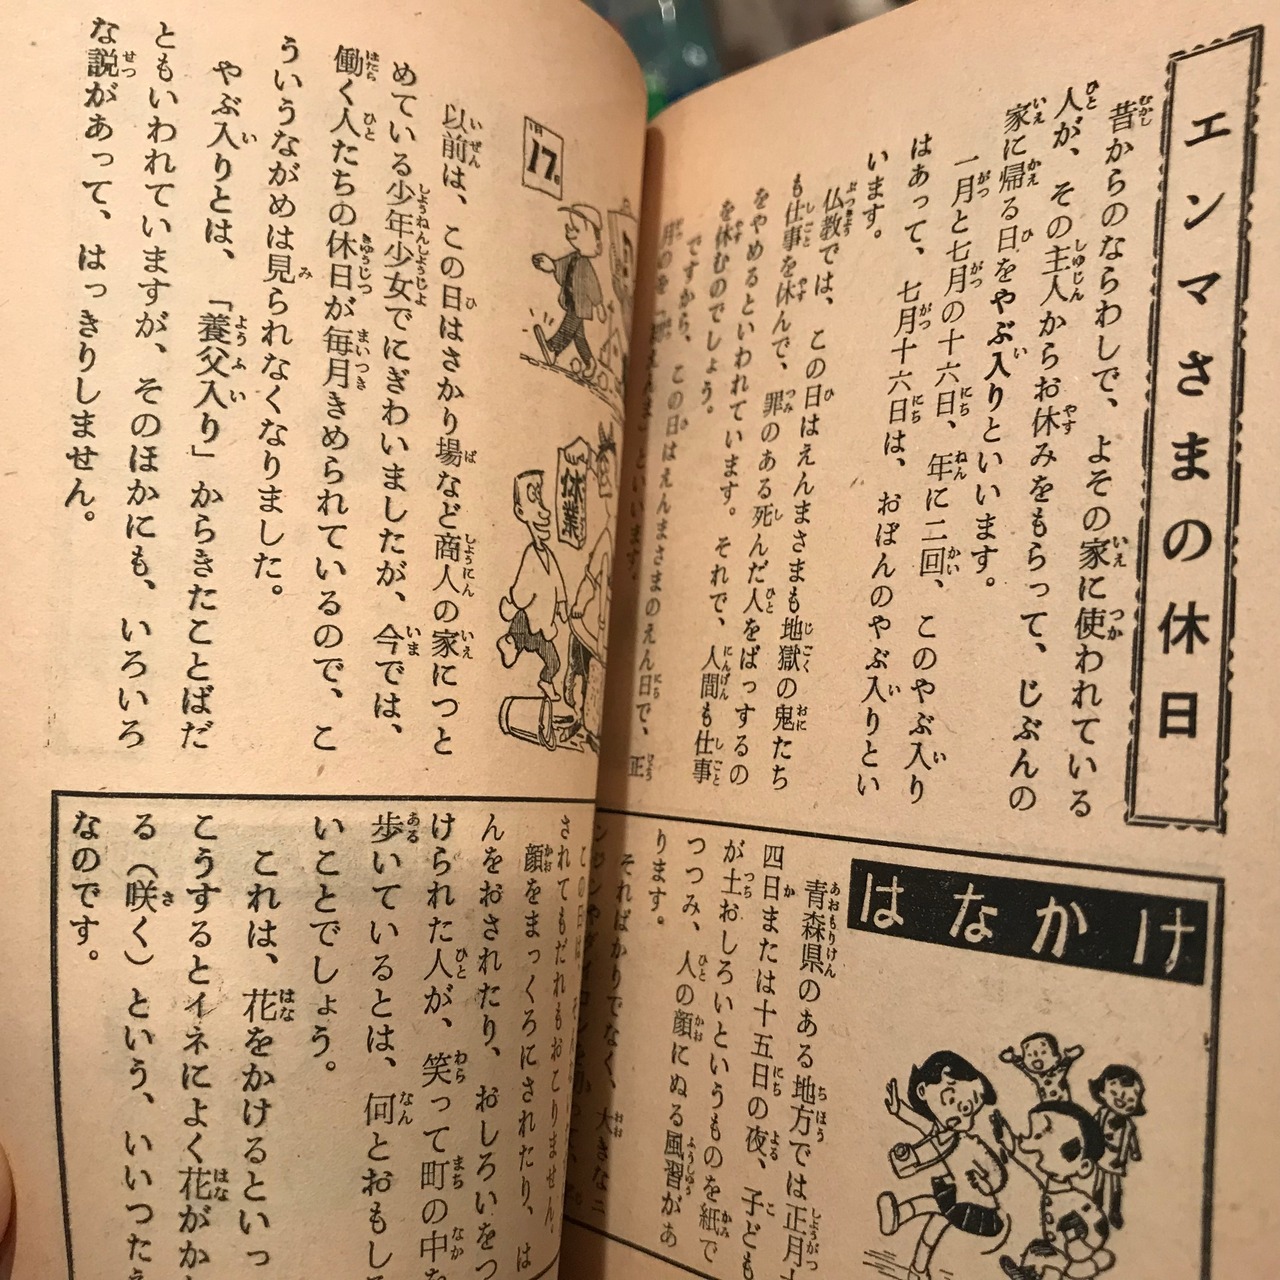 エンマさまの休日
昔からのならわしで、よその家に使われている
人が、その主人からお休みをもらって、じぶんの
家に帰る日をやぶ入りといいます。
一月と七月の十六日、年に二回、このやぶ入り
はあって、七月十六日は、おぼんのやぶ入りとい
います。
仏教では、この日はえんまさまも地獄の鬼たち
も仕事を休んで、罪のある死んだ人をばっするの
をやめるといわれています。それで、人間も仕事
を休むのでしょう。
ですから、この日はえんまさまのえん日で、正
といいます。
17
休業
以前は、この日はさかり場など商人の家につと
めている少年少女でにぎわいましたが、今では、
働く人たちの休日が毎月きめられているので、こ
ういうながめは見られなくなりました。
やぶ入りとは、「養父入り」からきたことばだ
ともいわれていますが、そのほかにも、いろいろ
な説があって、はっきりしません。
はなかけ
青森県のある地方では正月十
四日または十五日の夜、子ども
が土おしろいというものを紙で
つつみ、人の顔にぬる風習があ
ります。
そればかりでなく、大きなニ
されてもだれもおこりません。
顔をまっくろにされたり、は
んをおされたり、おしろいをつ
けられた人が、笑って町の中を
歩いているとは、何とおもし
いことでしょう。
これは、花をかけるといっ
こうするとイネによく花がか
る（咲く）という、いいつたえ
なのです。